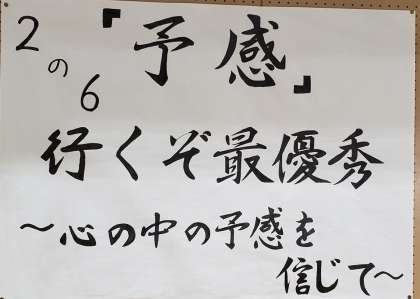 2の6 『予感』
行くぞ最優秀
～心の中の予感を
信じて～